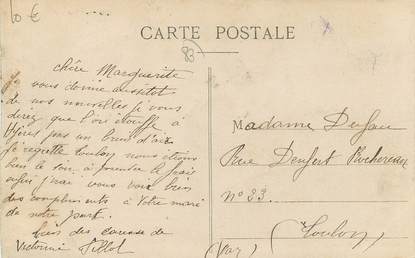 10 €
CARTE POSTALE
83
Chère Marguerite
Je vous donne aussitot
de nos nouvelles je vous
direz que l'on étouffe à
Hières pas un brent d'air
Je regrette Toulon nous étions
bien le soir à prendre le frais
enfin j'irai vous voir bien
des compliments à Votre mari
de notre part.
bien des caresses de
Victorine Tillol
Madame Dufau
Rue Denfert Rochereau
N° 33.
(Toulon)
(Var)